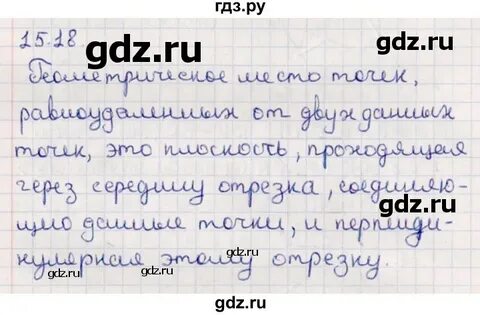 гдз.ру
15.18
gdz.ru
gdz.ru
Геометрическое место точек,
равноудаленных от двух данных
gdz.ru
точек, это плоскость, проходящая
через середину отрезка, соединяю-
gdz.ru
щию данные точки, и перпенди-
gdz.ru
кулярная этому отрезку.
gdz.ru
gdz.ru